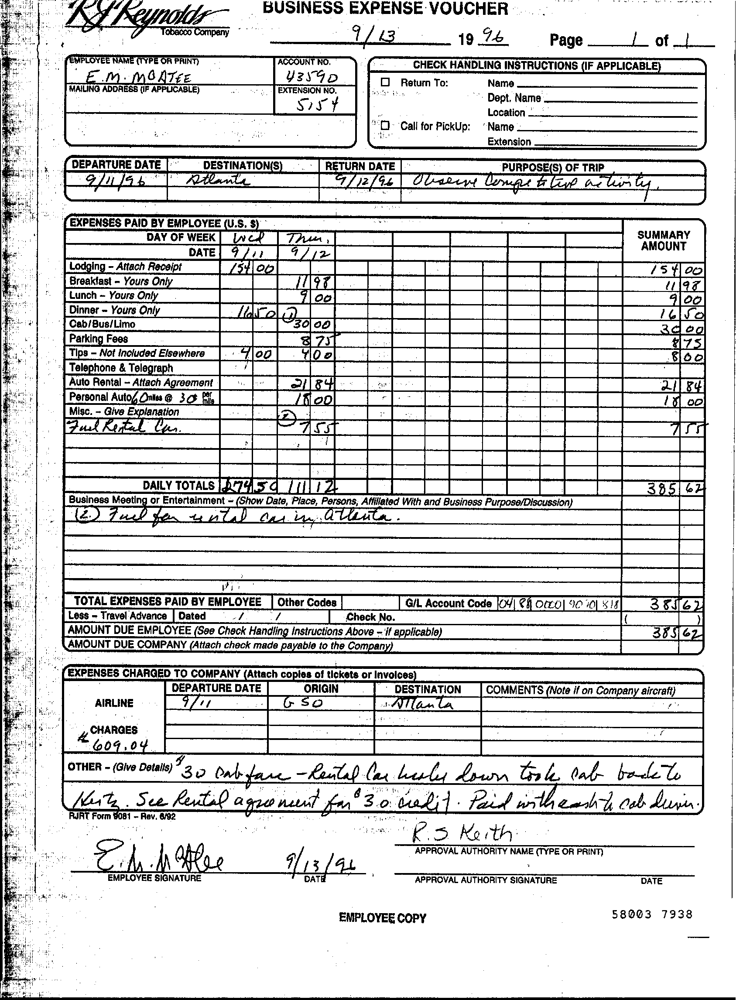 BUSINESS EXPENSE VOUCHER
RJReynolds
Tobacco Company
9/13 19 96 Page 1 of 1
EMPLOYEE NAME (TYPE OR PRINT) ACCOUNT NO. CHECK HANDLING INSTRUCTIONS (IF APPLICABLE)
E.M. McATEE 43590 Return To: Name
MAILING ADDRESS (IF APPLICABLE) EXTENSION NO. Dept. Name
5154 Location
Call for PickUp: Name
Extension
DEPARTURE DATE DESTINATION(S) RETURN DATE PURPOSE(S) OF TRIP
9/11/96 Atlanta 9/12/96 Observe Competitive activity.
EXPENSES PAID BY EMPLOYEE (U.S. $)
DAY OF WEEK Wed Thur. SUMMARY
DATE 9/11 9/12 AMOUNT
Lodging – Attach Receipt 154 00 154 00
Breakfast – Yours Only 11 98 11 98
Lunch – Yours Only 9 00 9 00
Dinner – Yours Only 116 50 16 50
Cab/Bus/Limo (1) 30 00 30 00
Parking Fees 8 75 8 75
Tips – Not Included Elsewhere 4 00 4 00 8 00
Telephone & Telegraph
Auto Rental – Attach Agreement 21 84 21 84
Personal Auto 60 miles @ 30 per mile 18 00 18 00
Misc. – Give Explanation
Fuel Rental Car. (2) 7 55 7 55
DAILY TOTALS 274 50 111 12 385 62
Business Meeting or Entertainment – (Show Date, Place, Persons, Affiliated With and Business Purpose/Discussion)
(2) Fuel for rental car in Atlanta.
TOTAL EXPENSES PAID BY EMPLOYEE Other Codes G/L Account Code 385 62
Less – Travel Advance Dated / / Check No. ( )
AMOUNT DUE EMPLOYEE (See Check Handling Instructions Above – if applicable) 385 62
AMOUNT DUE COMPANY (Attach check made payable to the Company)
EXPENSES CHARGED TO COMPANY (Attach copies of tickets or Invoices)
DEPARTURE DATE ORIGIN DESTINATION COMMENTS (Note if on Company aircraft)
AIRLINE 9/11 GSO Atlanta
CHARGES
609.04
OTHER – (Give Details) $30 cab fare – Rental Car broke down took cab back to
Hertz. See Rental agreement for $30 credit. Paid with cash to cab driver.
RJRT Form 9081 – Rev. 6/92
R.S Keith
APPROVAL AUTHORITY NAME (TYPE OR PRINT)
E.M. McAtee 9/13/96
EMPLOYEE SIGNATURE DATE APPROVAL AUTHORITY SIGNATURE DATE
EMPLOYEE COPY 58003 7938